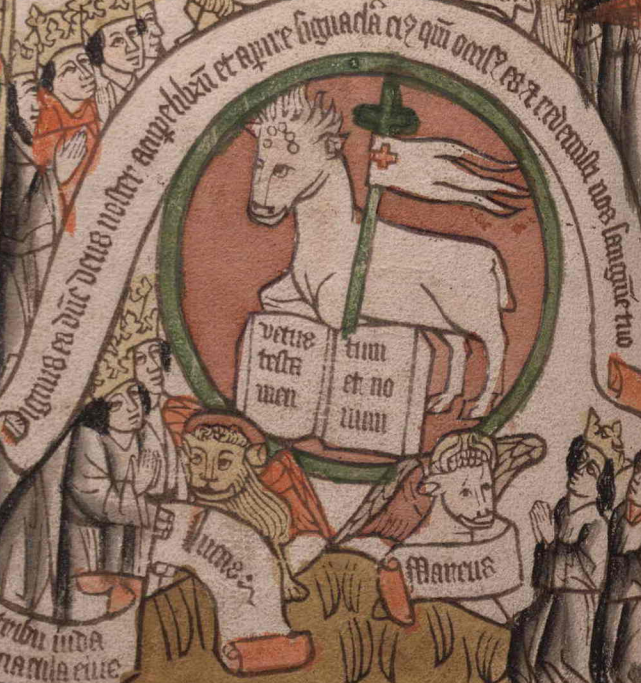 Dignus es dñe deus noster accipe librū et apire signacla eiꝰ qm̄ occisꝰ es ⁊ redemisti nos sanguine tuo
vetus
testa
men
tum
et no
uum
Lucas
Marcus
tribu iuda
nacula eius